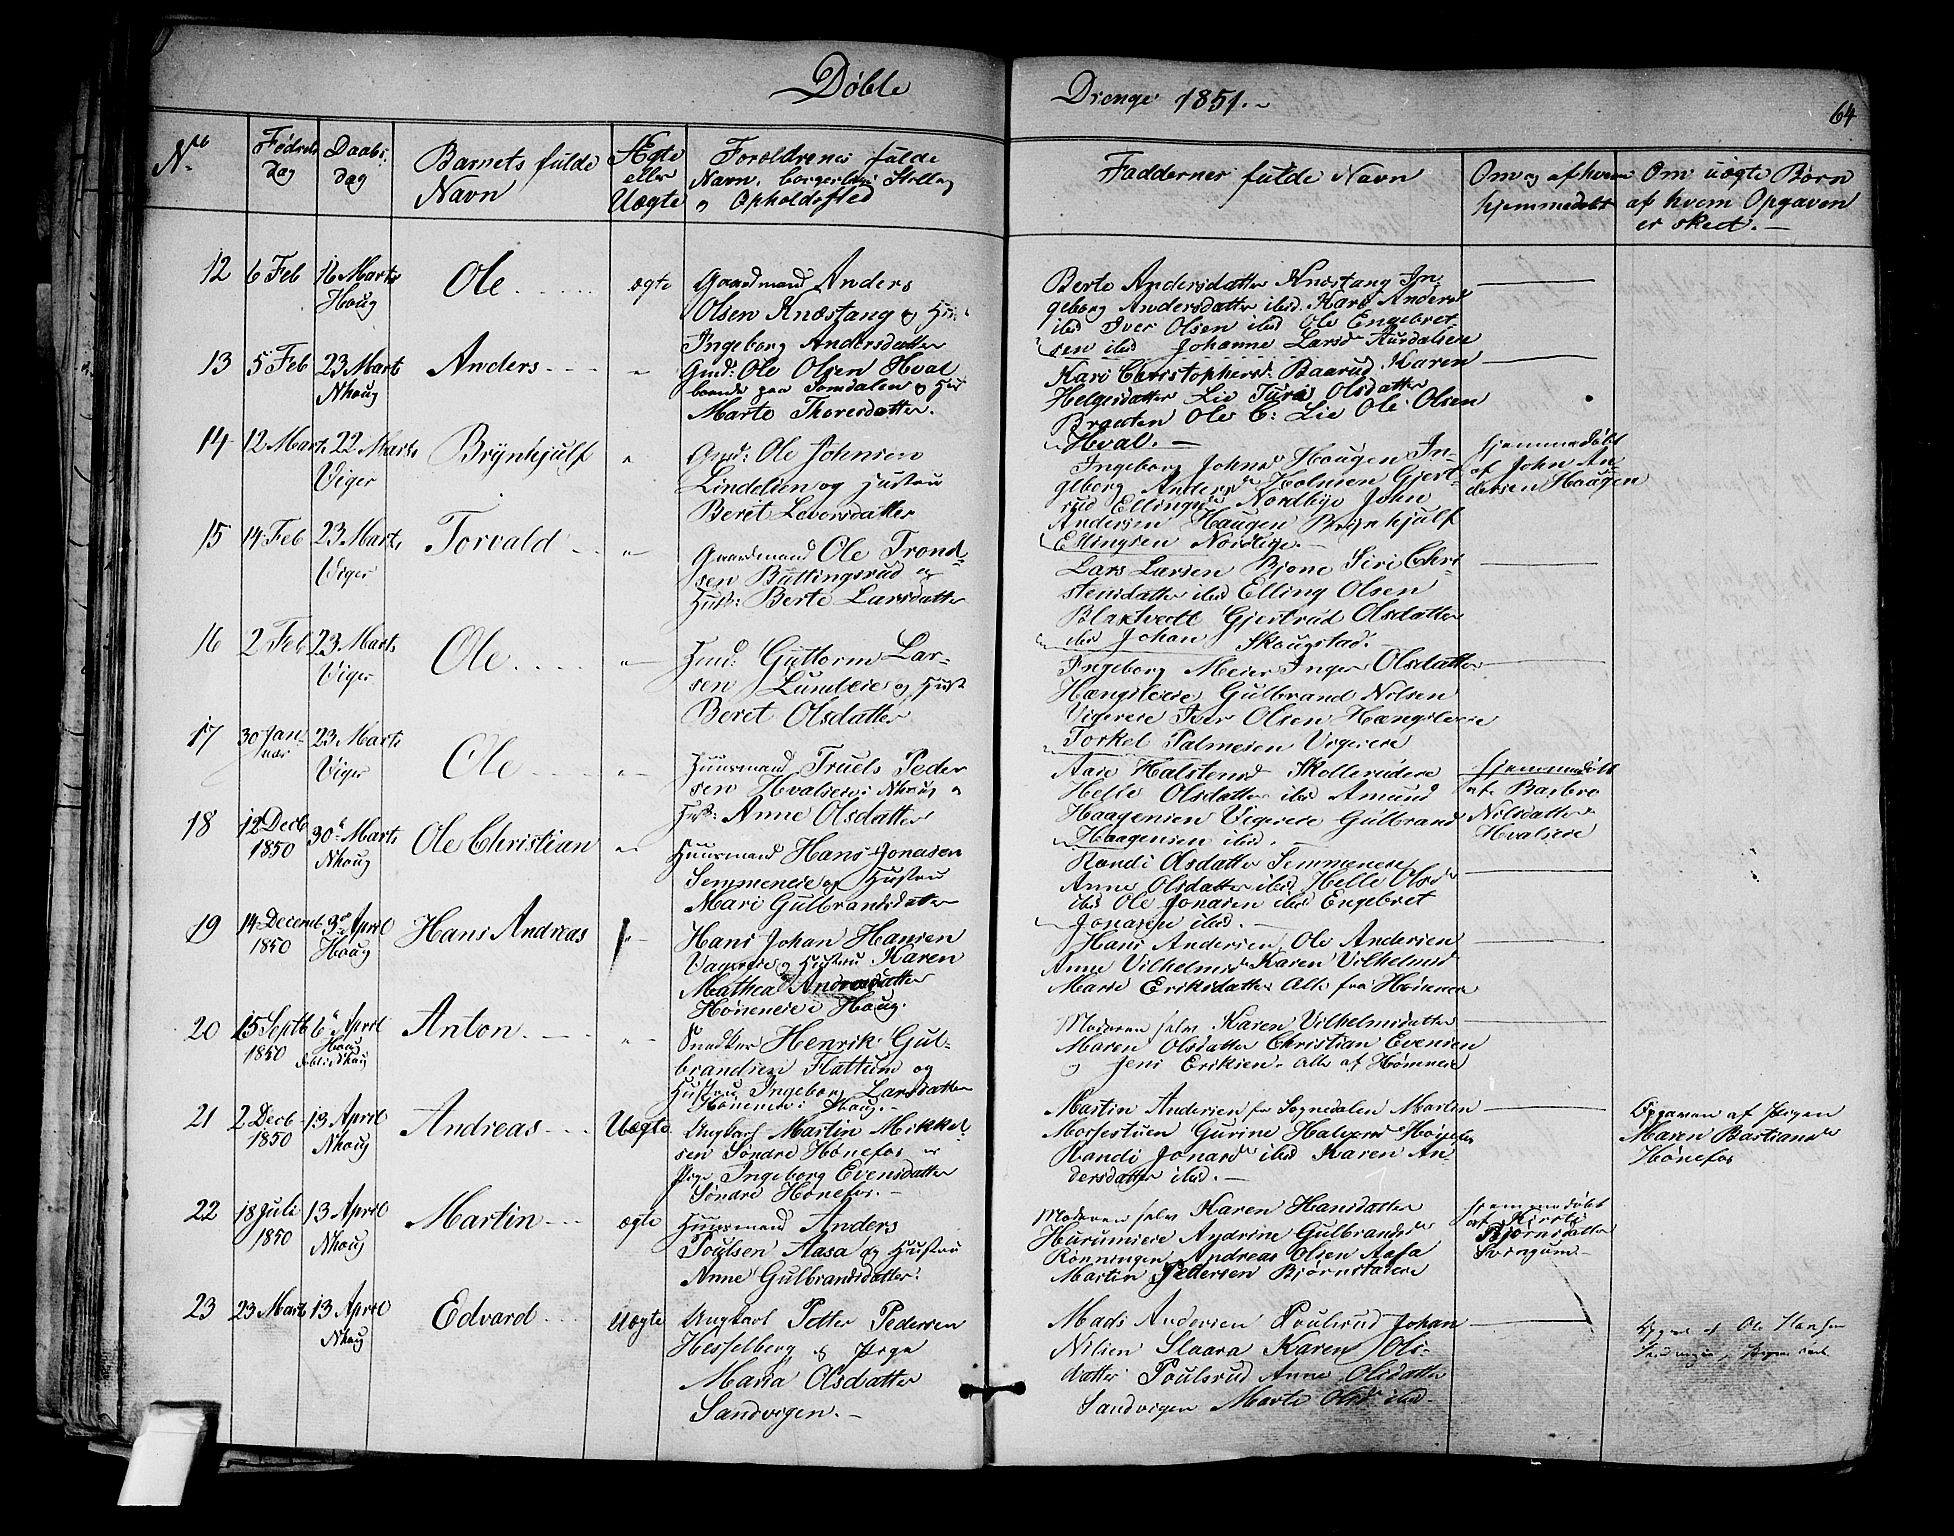 Døbte
Drenge 1851.
64
No
Fødsels
dag
Daabs
dag
Barnets fulde
Navn
Ægte
eller
Uægte
Forældrenes fulde
Navn, borgerlige Stilling
og Opholdssted
Faddernes fulde Navn
Om og af hvem
hjemmedøbt
Om uægte Børn
af hvem Opgaven
er skeet.
12
6 Feb
16 Marts
Haug
Ole
ægte
Gaardmand Anders
Olsen Knæstang og
Ingeborg Andersdatter
Berte Andersdatter Knæstang In-
geborg Andersdatter ibid Kari Andersd
ibid Iver Olsen ibid Ole Engebret
sen ibid Johanne Larsd
13
5 Feb
23 Marts
Nhoug
Anders
"
Gmd: Ole Olsen Hval
boende paa Somdalen og
Marte Thoresdatter.
Kari Christophersd: Baarud Karen
Helgesdatter Lie Turi Olsdatter
Braaten Ole C: Lie Ole Olsen
Hval.
14
12 Marts
22 Marts
Viger
Brÿnhjulf
"
Gmd: Ole Johnsen
Lindelien og Hustru
Beret Leversdatter
Ingeborg Johnsd Haugen In-
geborg Andersd Holmen Gjert-
rud Ellingsd Nordbye John
Andersen Haugen Brynhjulf
Ellingsen Nordbye.
Hjemmedøbt
af John An-
dersen Haugen
15
14 Feb
23 Marts
Viger
Torvald
"
Gaardmand Ole Trond-
sen Buttingsrud og
Hust: Berte Larsdatter
Lars Larsen Bjone Siri Chri-
stensdatter ibid Elling Olsen
Gjertrud Olsdatter
ibid Johan Skougstad.
16
2 Feb
23 Marts
Viger
Ole
"
Hmd: Guttorm Lar-
sen Lundeie og Hust
Beret Olsdatter
Ingeborg Meier Inger Olsdatter
Hængsleeie Gulbrand Nilsen
Vigereie Iver Olsen Hængsleeie
Torkel Palmesen Vigereie
17
30 Jan-
uar
23 Marts
Viger
Ole
"
Huusmand Truels Peder
sen Hvalseie i Nhoug og
Hust: Anne Olsdatter
Aase Halstensd Skollerudeie
Helle Olsdatter ibid Amund
Haagensen Vigereie Gulbrand
Haagensen ibid.
Hjemmedøbt
af Barbro
Nilsdatter
Hvalseie
18
12 Decb
1850
30 Marts
Nhoug
Ole Christian
"
Huusmand Hans Jonasen
Semmeneie og Hustru
Mari Gulbrandsdatter
Randi Olsdatter Semmeneie
Anne Olsdatter ibid Helle Olsd
ibid Ole Jonasen ibid Engebret
Jonasen ibid.
19
14 Decemb
1850
3 April
Houg
Hans Andreas
"
Hans Johan Hansen
og Hustru Karen
Mathea Andreasdatter
Høneneie i Haug.
Hans Andersen, Ole Andersen
Anne Vilhelmsd Karen Vilhelmsd
Marie Eriksdatter Alle fra Hønene
20
15 Septb
1850
6 April
Houg
Anton
"
Snedker Henrik Gul-
brandsen Flattum og
Hustru Ingeborg Larsdatter
Høneneie i Houg.
Moderen selv Karen Vilhelmsdatter
Maren Olsdatter Christian Evensen
og Jens Eriksen. Alle af Hønene
21
2 Decb
1850
13 April
Nhoug
Andreas
Uægte
Ungkarl Martin Mikkel-
sen Søndre Hønefos og
Pige Ingeborg Evensdatter
Søndre Hønefos.
Martin Andersen fra Sognedalen Marten
Gurine Halvorsd
Randi Jonasd ibid Karen An
dersdatter ibid.
Opgaven af Pigen
Maren Bastiansd
Hønefos
22
18 Juli
1850
13 April
Nhoug
Martin
ægte
Huusmand Anders
Poulsen Aasa og Hustru
Anne Gulbrandsdatter.
Moderen selv Karen Hansdatter
Andrine Gulbrandsd
Rønningen Andreas Olsen Aasa
Martin Pedersen Bjørnstadeie
Hjemmedøbt
af Kirsti
Bjørnsdatter
23
23 Marts
13 April
Nhoug
Edvard
Uægte
Ungkarl Petter Pedersen
Hesselberg og Pige
Maria Olsdatter
Sandvigen.
Mads Andersen Poulsrud Johan
Nilsen Slaara Karen Ols-
datter Poulsrud Anne Olsdatter
Sandvigen Marte Olsd ibid.
af Ole Hansen